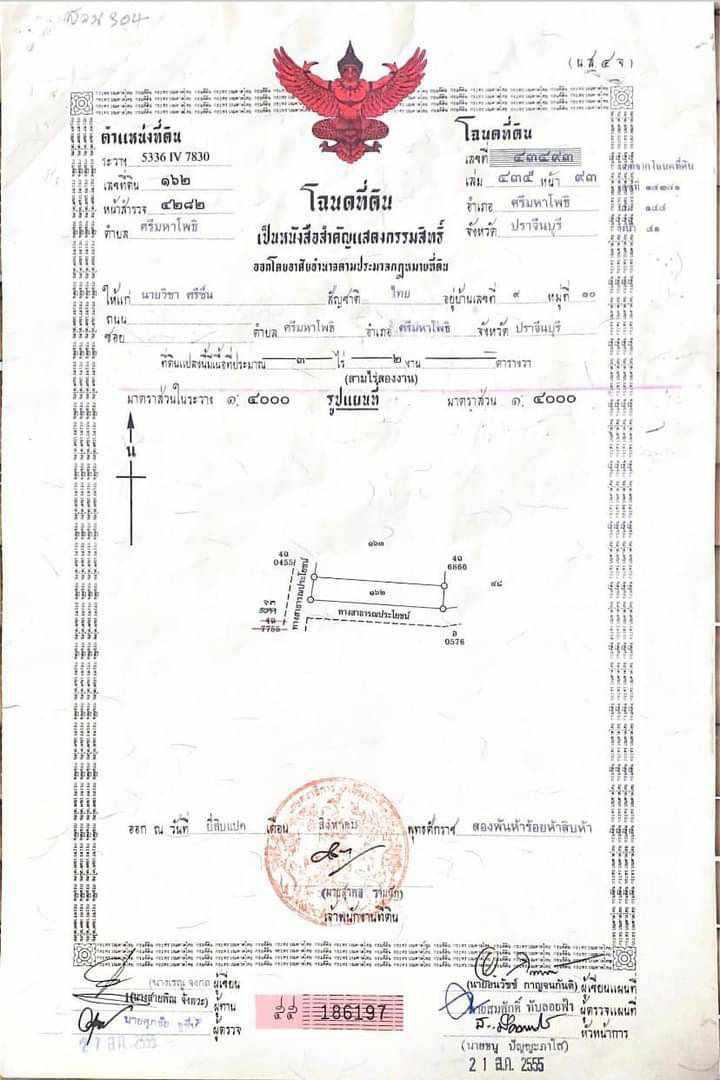 สวน 304
(น.ส. ๔ จ)
ตำแหน่งที่ดิน
ระวาง 5336 IV 7830
เลขที่ดิน ๑๖๒
หน้าสำรวจ ๔๒๘๒
ตำบล ศรีมหาโพธิ
โฉนดที่ดิน
เลขที่ ๔๓๔๙๓
เล่ม ๔๓๕ หน้า ๙๓
อำเภอ ศรีมหาโพธิ
จังหวัด ปราจีนบุรี
โฉนดที่ดิน
เป็นหนังสือสำคัญแสดงกรรมสิทธิ์
ออกโดยอาศัยอำนาจตามประมวลกฎหมายที่ดิน
ให้แก่ นายวิชา ศรีชื่น สัญชาติ ไทย อยู่บ้านเลขที่ ๙ หมู่ที่ ๑๐
ถนน
ซอย ตำบล ศรีมหาโพธิ อำเภอ ศรีมหาโพธิ จังหวัด ปราจีนบุรี
ที่ดินแปลงนี้มีเนื้อที่ประมาณ ๓ ไร่ ๒ งาน ตารางวา
(สามไร่สองงาน)
มาตราส่วนในระวาง ๑: ๔๐๐๐ รูปแผนที่ มาตราส่วน ๑: ๔๐๐๐
น
๑๖๓
4ฉ
0455
4ฉ
6866
๑๖๒
๔๘
ทางสาธารณประโยชน์
ทางสาธารณประโยชน์
4ฉ
7755
0576
ออก ณ วันที่ ยี่สิบแปด เดือน สิงหาคม พุทธศักราช สองพันห้าร้อยห้าสิบห้า
เจ้าพนักงานที่ดิน
ผู้เขียน
ผู้ทาน
ผู้ตรวจ
186197
ผู้เขียนแผนที่
นายสมศักดิ์ ทับลอยฟ้า ผู้ตรวจแผนที่
หัวหน้าการ
21 ส.ค. 2555